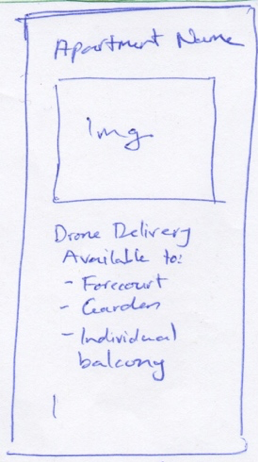 Apartment Name
Img
Drone Delivery
Available to:
- Forecourt
- Garden
- Individual
balcony